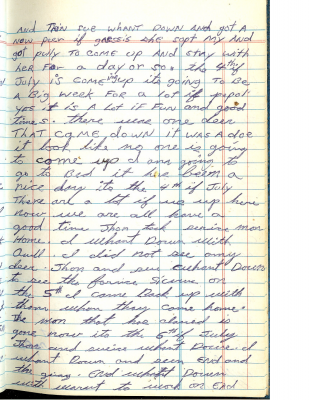 And Then sue whant Down and got A
new pier of glassis she sapt my And
got polly to come up And stay with
her For a day or so. the 4th of
July is comeing up its going to Be
A Big week For a lot of pepol
yes it is A Lot if Fun and good
times. there were one deer
THAT CAME down it was A doe
it look like no one is going
to come up I am going to
go to Bed it has beem a
nice day its the 4th if July
There are a lot if us up here
now we are all have a
good time Jhon took swime mon
Home. I whant Down with
I did not see any
deer. Jhon and sue whant Down
to see the
the 5th I came Back up with
them when they came home.
The mon that he is
gone now its the 6th of July
Jhon and swise whant Down. I
whant Down and seen End and
the gang. End whant Down
with to work on End